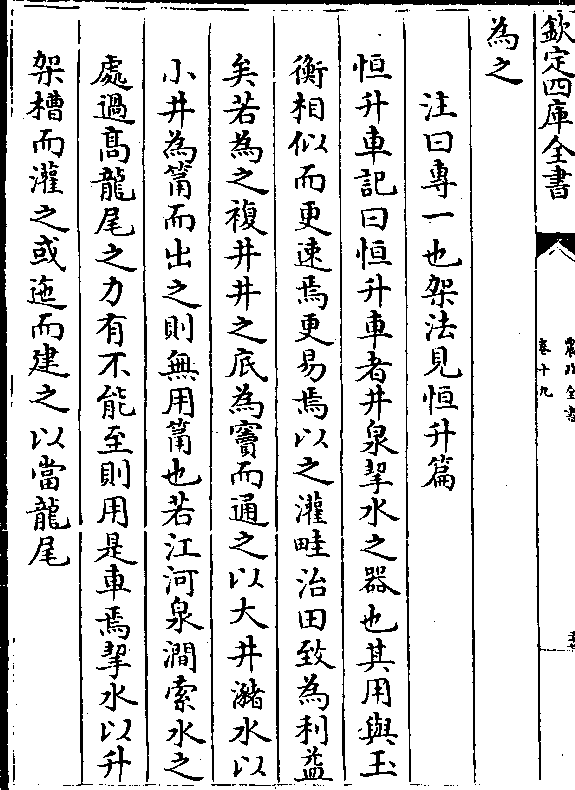 欽定四庫全書
農政全書
卷十九
為之
注曰專一也架法見恒升篇
恒升車記曰恒升車者井泉挈水之器也其用與玉
衡相似而更速焉更易焉以之灌畦治田致為利益
矣若為之複井井之底為竇而通之以大井瀦水以
小井為筩而出之則無用筩也若江河泉澗索水之
處過高龍尾之力有不能至則用是車焉挈水以升
架槽而灌之或迤而建之以當龍尾